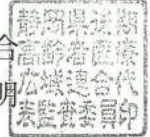 合
静岡県後期
高齢者医療
広域連合代
表監査委員印